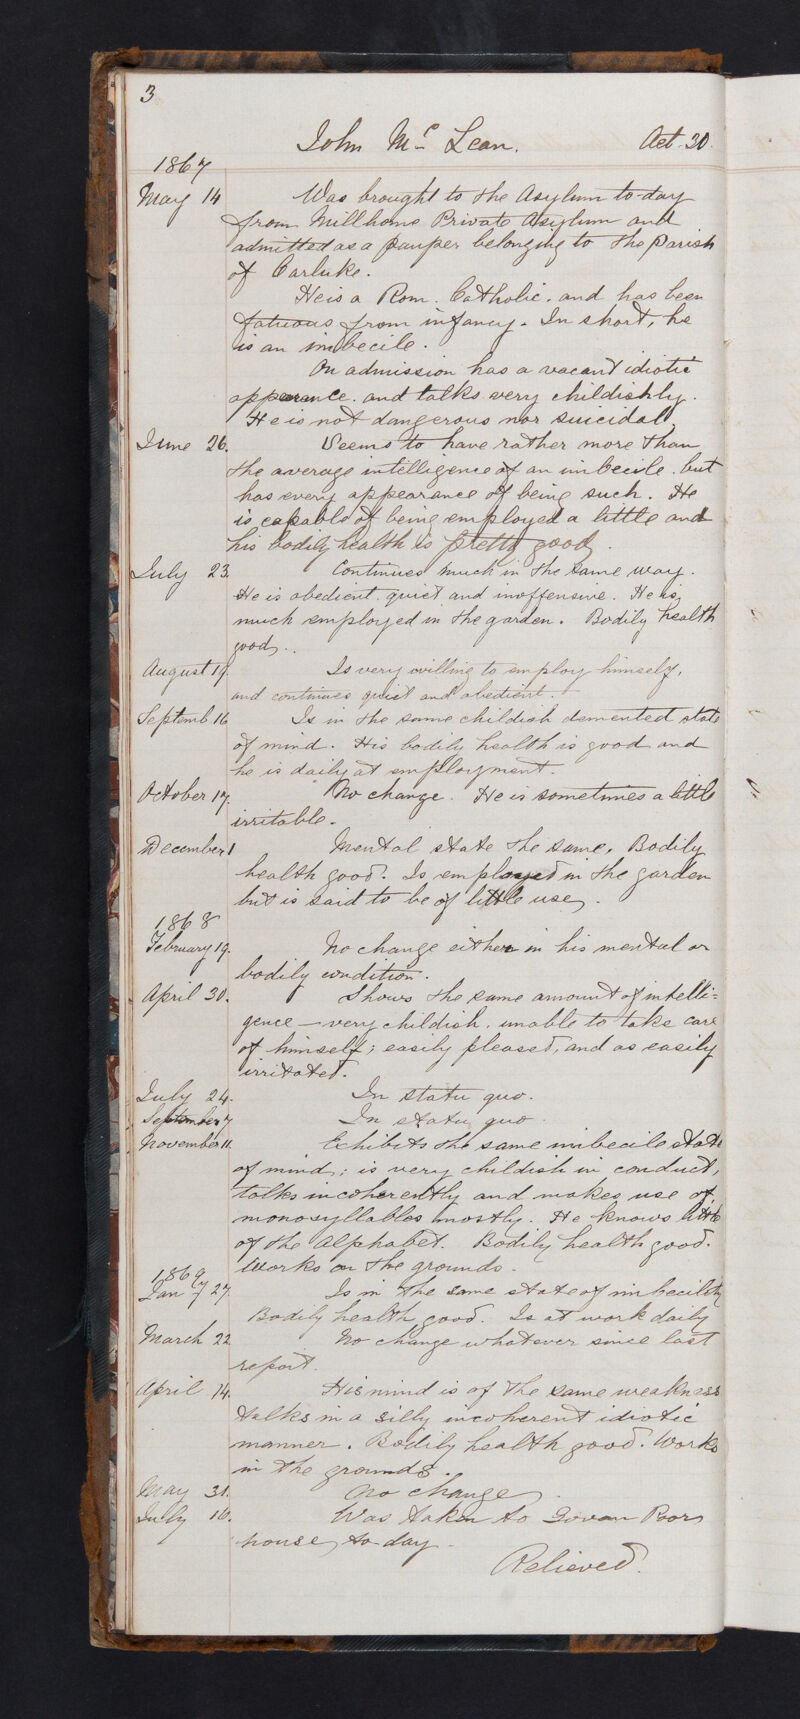 3
John Mc Lean. Aet. 30.
1867
May 14 Was brought to the Asylum to-day
from Millhome Private Asylum and
admitted as a pauper belonging to the Parish
of Carluke.
He is a Rom. Catholic. and has been
fatuous from infancy. In short, he
is an imbecile.
On admission has a vacant idiotic
appearance. and talks very childishly.
He is not dangerous nor suicidal.
June 26. Seems to have rather more than
the average intelligence of an imbecile. but
has every appearance of being such. He
is capable of being employed a little and
his bodily health is pretty good.
July 23. Continues much in the same way.
He is obedient, quiet and inoffensive. He is,
much employed in the garden. Bodily health
good.
August 19. Is very willing to employ himself,
and continues quiet and obedient.
Septemb 16 Is in the same childish demented state
of mind. His bodily health is good and
he is daily at employment.
October 17. No change. He is sometimes a little
irritable.
December 1 Mental state the same. Bodily
health good. Is employed in the garden
but is said to be of little use.
1868
February 19. No change either in his mental or
bodily condition.
April 30. Shows the same amount of intelli=
gence — very childish. unable to take care
of himself; easily pleased, and as easily
irritated.
July 24. In statu quo.
September 7 In statu quo
November 11. Exhibits the same imbecile state
of mind; is very childish in conduct,
talks incoherently and makes use of
monosyllables mostly. He knows little
of the Alphabet. Bodily health good.
Works on the grounds.
1869
Jany 27 Is in the same state of imbecility
Bodily health good. Is at work daily
March 22 No change whatever since last
report.
April 14. His mind is of the same weakness
talks in a silly incoherent idiotic
manner. Bodily health good. Works
in the grounds.
May 31. No change.
July 16. Was taken to Govan Poors
house, to day.
Relieved.